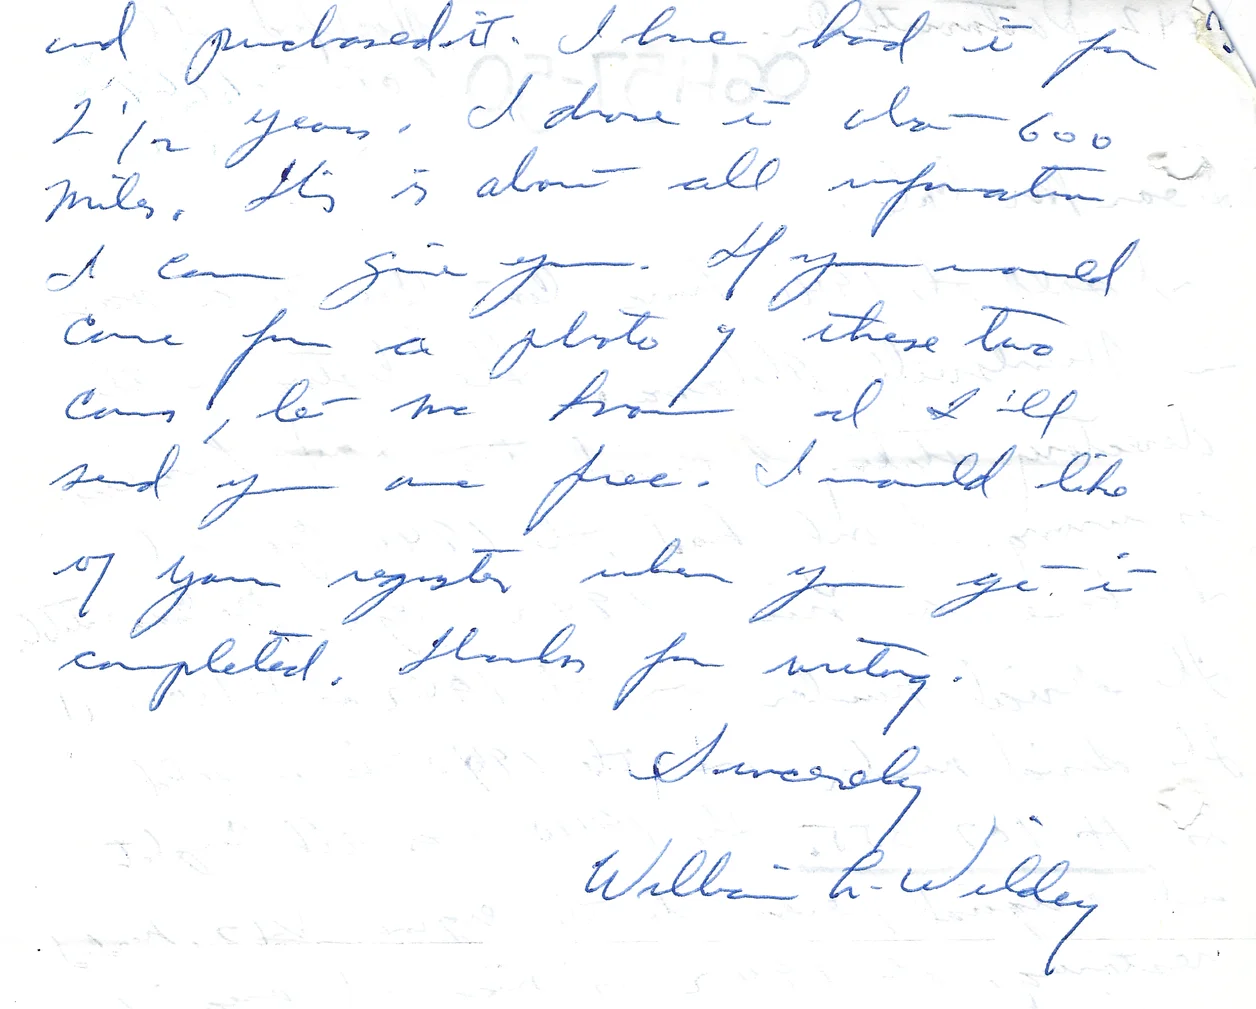 and purchased it. I have had it for
2 1/2 years. I drove it about 600
miles. This is about all information
I can give you. If you would
care for a photo of these two
cars, let me know and I'll
send you one free. I would like
of your register when you get it
completed. Thanks for writing.
Sincerely
William L. Wildey